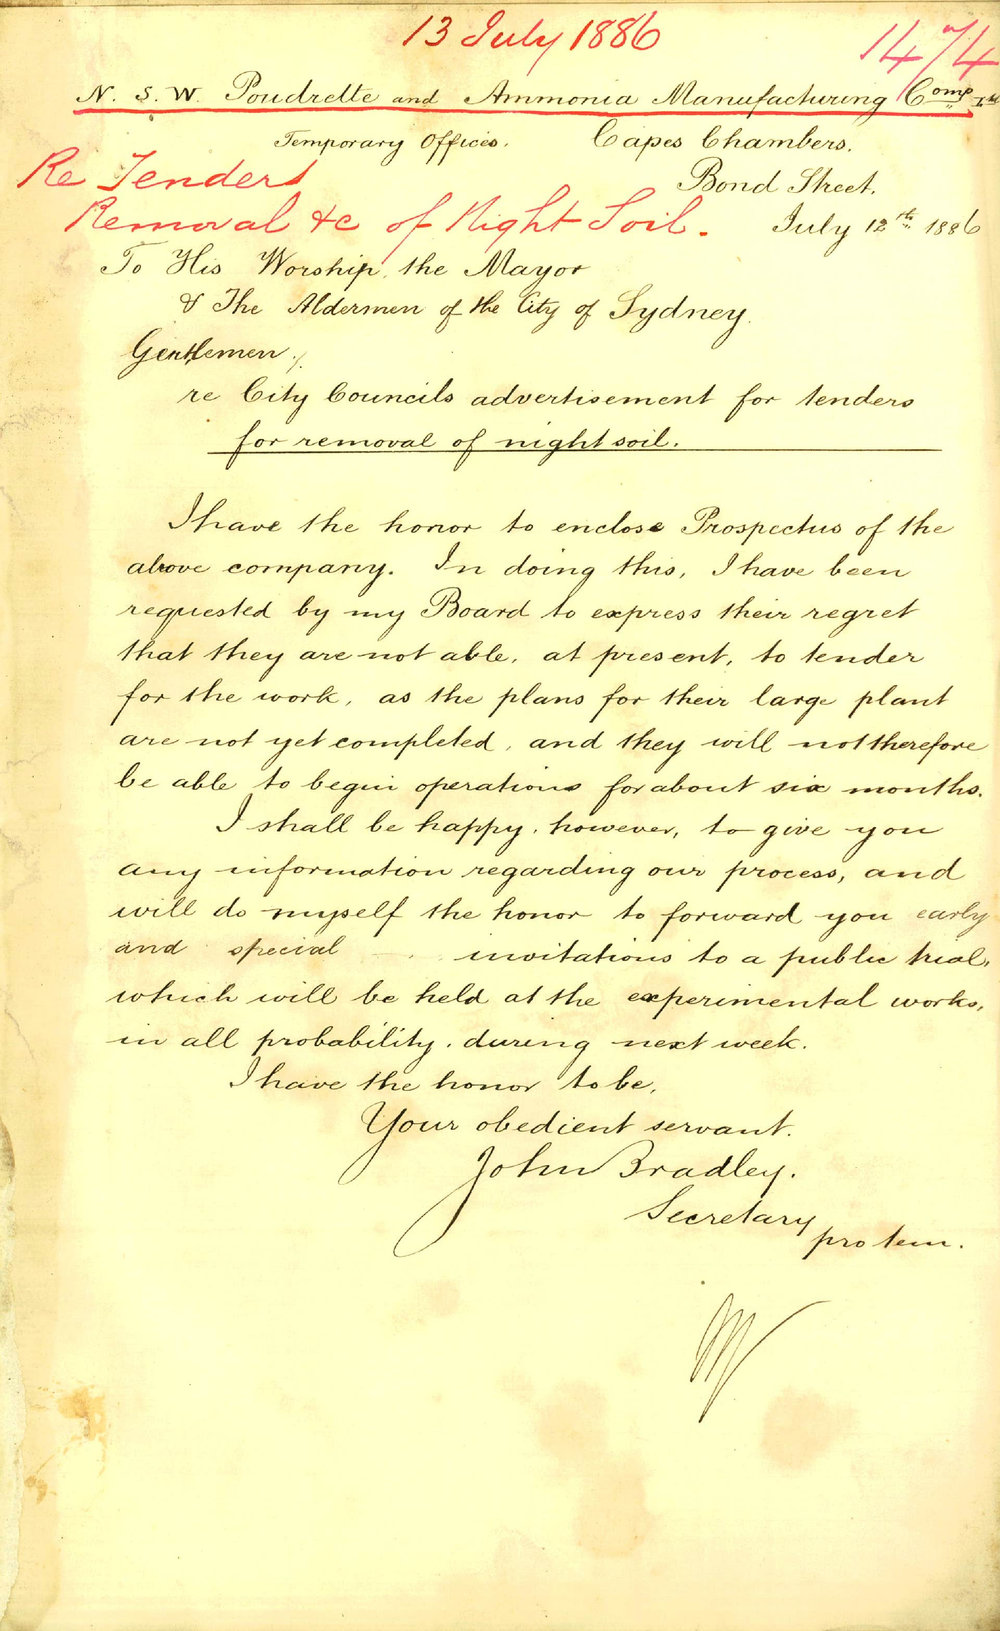 13 July 1886
1474
N. S. W. Poudrette and Ammonia Manufacturing Comp Ltd
Temporary Offices. Capes Chambers.
Re Tenders
Bond Street.
Removal &c of Night Soil.
July 12th 1886
To His Worship, the Mayor
& The Aldermen of the City of Sydney.
Gentlemen,
re City Councils advertisement for tenders
for removal of night soil.
I have the honor to enclose Prospectus of the
above company. In doing this, I have been
requested by my Board to express their regret
that they are not able, at present, to tender
for the work, as the plans for their large plant
are not yet completed, and they will not therefore
be able to begin operations for about six months.
I shall be happy, however, to give you
any information regarding our process, and
will do myself the honor to forward you early
and special invitations to a public trial,
which will be held at the experimental works,
in all probability, during next week.
I have the honor to be,
Your obedient servant.
John Bradley.
Secretary
pro tem.